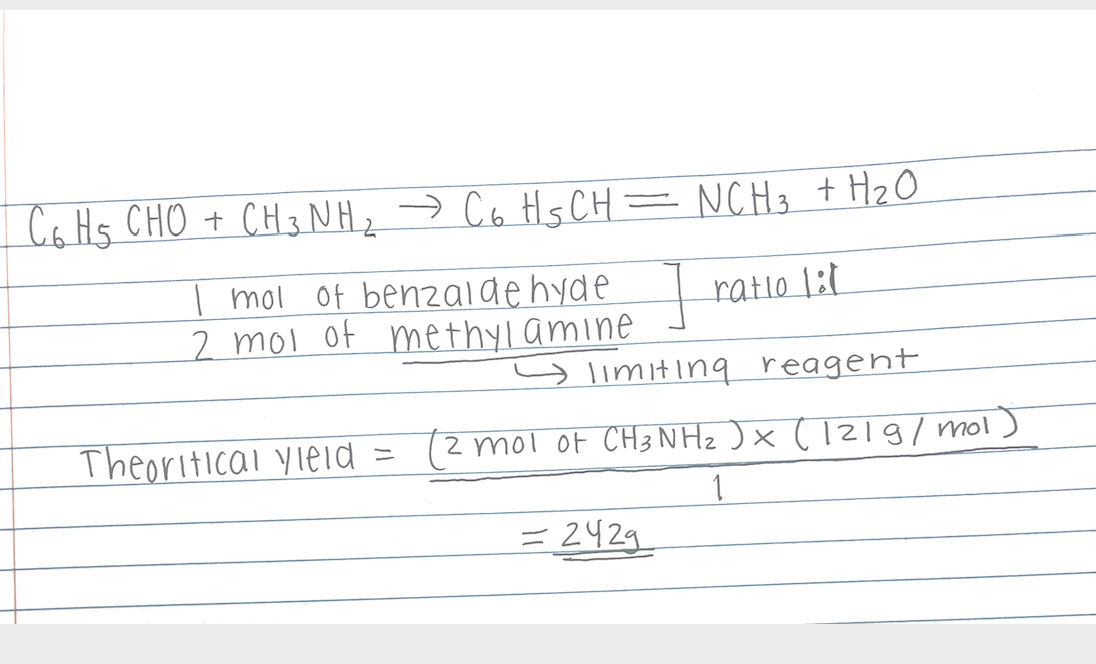 C₆H₅CHO + CH₃NH₂ → C₆H₅CH = NCH₃ + H₂O
1 mol of benzaldehyde ] ratio 1:1
2 mol of methylamine
↳ limiting reagent
Theoritical yield = (2 mol of CH₃NH₂) x (121g/mol)
1
= 242g